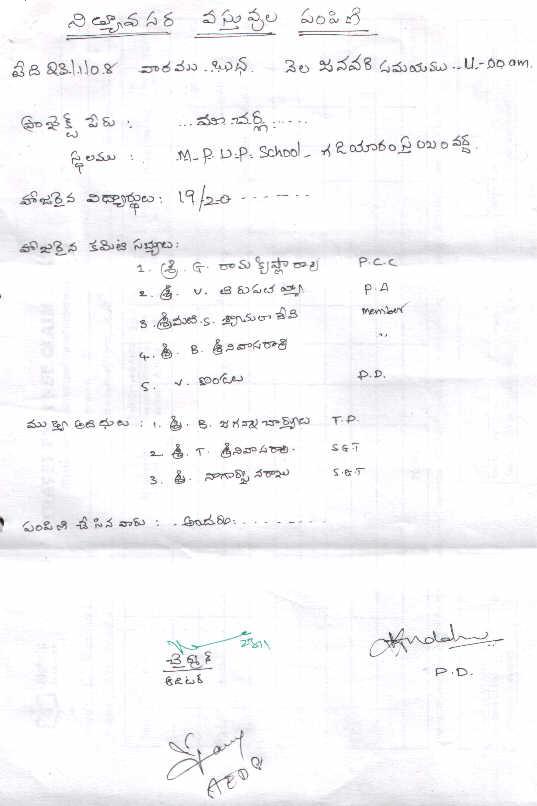 నిత్యావసర వస్తువుల పంపిణి
తేది 23/1/08 వారము ..బుధ. నెల జనవరి సమయము ..11-00 am.
ప్రాజెక్ట్ పేరు : ... మాచర్ల .....
స్థలము : M.P.U.P. School - గడియారం స్తంబం వద్ద.
హాజరైన విద్యార్థులు : 19/20 ------
హాజరైన కమిటి సభ్యులు :
1. శ్రీ. G. రామకృష్ణారావు P.C.C
2. శ్రీ. V. P.A
3. శ్రీమతి. S. శ్యామలాదేవి member
4. శ్రీ. B. శ్రీనివాసరావు "
5. V. P.D.
ముఖ్య అతిధులు : 1. శ్రీ. B. జగన్నాధాచార్యులు T.P.
2. శ్రీ. T. శ్రీనివాసరావు. S.G.T
3. శ్రీ. S.G.T
పంపిణి చేసిన వారు : . అందరు. --------
P.D.